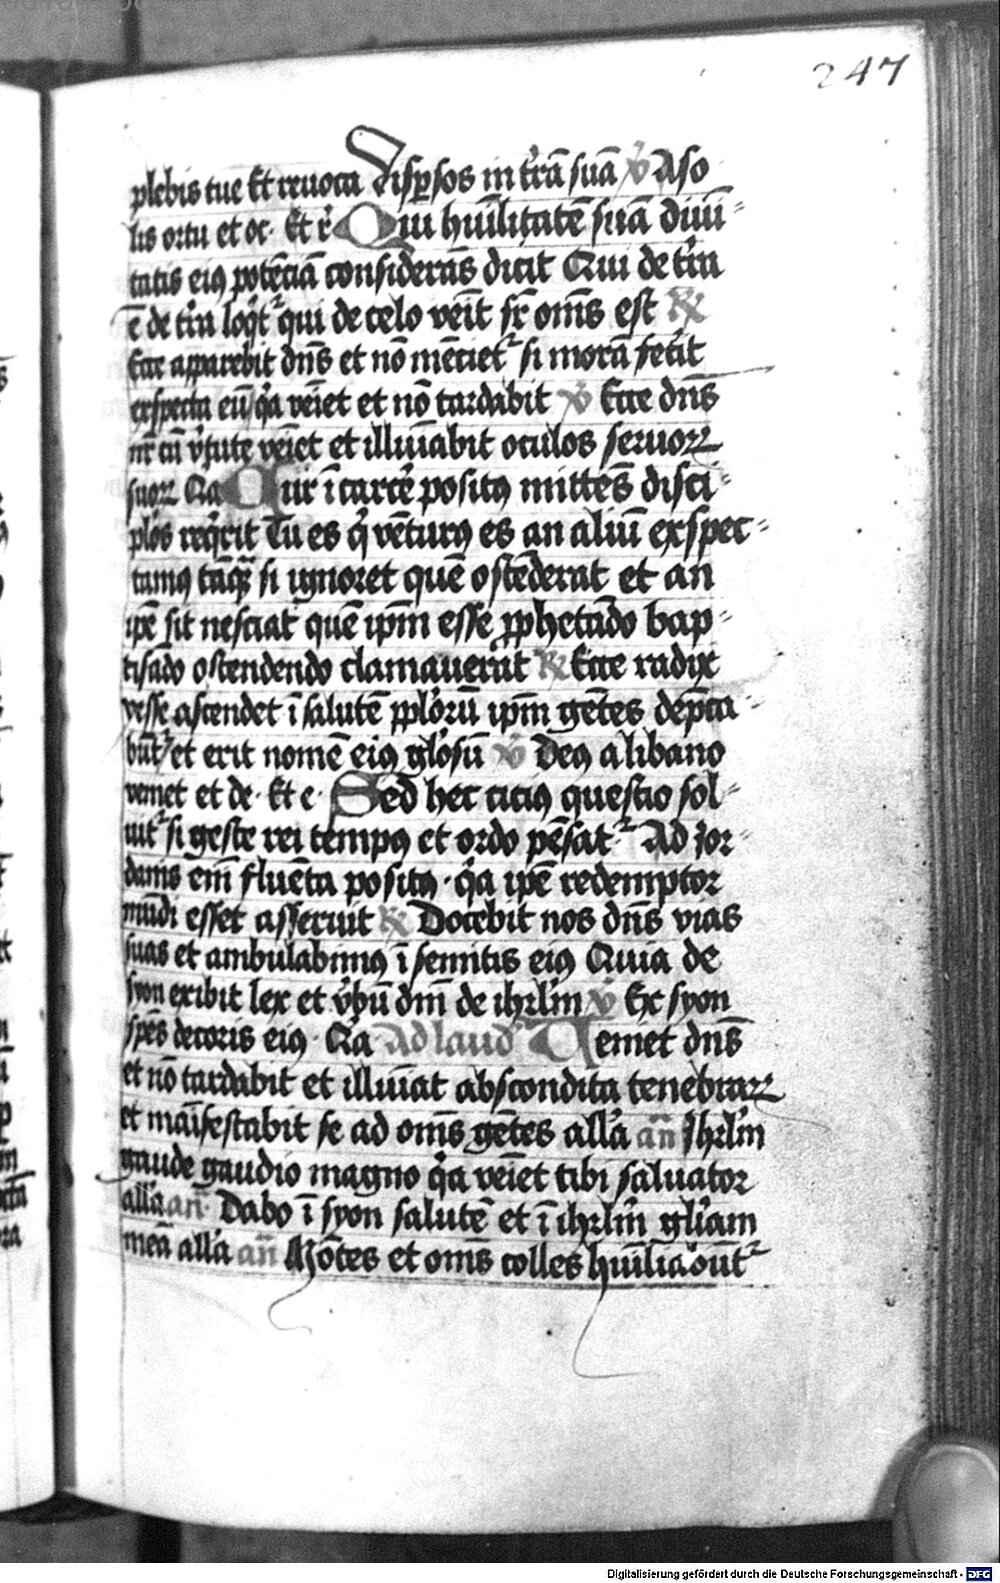 247
plebis tue Et reuoca disꝑsos in t̄rā suā ℣ A so
lis ortu et oc· Et r̄ Qui hūilitatē suā diuī
tatis eiꝰ potēciā considerās dicit Qui de t̄ra
ē de t̄ra loq̄t᷑ qui de celo veīt sr̄ om̄s est ℟
Ecce apparebit dn̄s et nō mēciet᷑ si morā fecīt
exspecta eū q̄a veīet et nō tardabit ℣ Ecce dn̄s
nr̄ cū v̄tute veīet et illuīabit oculos seruoꝝ
suoꝝ Qa Cur ī carcē positꝰ mittēs disci
plōs req̄rit Tu es q̄ vēturꝰ es an aliū exspec
tamꝰ tāq̄ si ignoret quē ostēderat et an
ipē sit nesciat quē ipm̄ esse ꝓphetādo bap
tisādo ostendendo clamauerāt ℟ Ecce radix
yesse ascendet ī salutē pplōrū ipm̄ gētes dep̄ca
būt᷑ et erit nomē eiꝰ glōsū ℣ Deꝰ a libano
veniet et de· Et e· Sed hec ciciꝰ questio sol
uit᷑ si geste rei tempꝰ et ordo pēsat᷑ Ad jor
danis em̄ fluēta positꝰ · q̄a ipē redemptor
mūdi esset asseruit ℟ Docebit nos dn̄s vias
suas et ambulabimꝰ ī semitis eiꝰ Quia de
syon exibit lex et v̄bū dn̄i de ihrl̄m ℣ Ex syon
spēs decoris eiꝰ · Qa Ad laud̄ Ueniet dn̄s
et nō tardabit et illuīat abscondita tenebraꝝ
et māifestabit se ad om̄s gētes all̄a an̄ Jhrl̄m
gaude gaudio magno q̄a veīet tibi saluator
all̄a an̄· Dabo ī syon salutē et ī ihrl̄m gl̄iam
meā all̄a an̄ Mōtes et om̄s colles hūiliabūt᷑
Digitalisierung gefördert durch die Deutsche Forschungsgemeinschaft - DFG